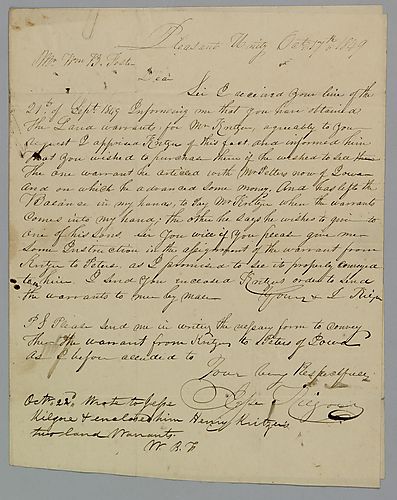 Pleasant Unity Oct 17th 1849
Mr Wm B. Foster
Dear
Sir I received your line of the
21st of Sept 1849 Informing me that you have obtained
the Land warrants for Mr Kritzer, agreeably to your
request I apprised Kritzer of this fact and informed him
that you wished to purchase them if he wished to sell them
The one warrant he articled with Mr Peters now of Iowa
And on which he advanced some money, And has left the
Balance in my hands, to Pay Mr Kritzer when the warrants
Comes into my hand; the other he says he wishes to give to
one of his Sons, sir you will if you please give me
Some Instruction in the assignment of the warrant from
Kritzer to Peters, as I promised to see it properly conveyed
to him. I send you enclosed Kritzers order to send
the warrants to me by mail Yours & J Kilgore
P S Please send me in writing the form to convey
the warrant from Kritzer to Peters of Iowa
as I before alluded to
Your very Respectfully
Jesse Kilgore
Oct. 22, Wrote to Jesse
Kilgore & enclosed him Henry Kritzer's
two land Warrants.
W. B. F